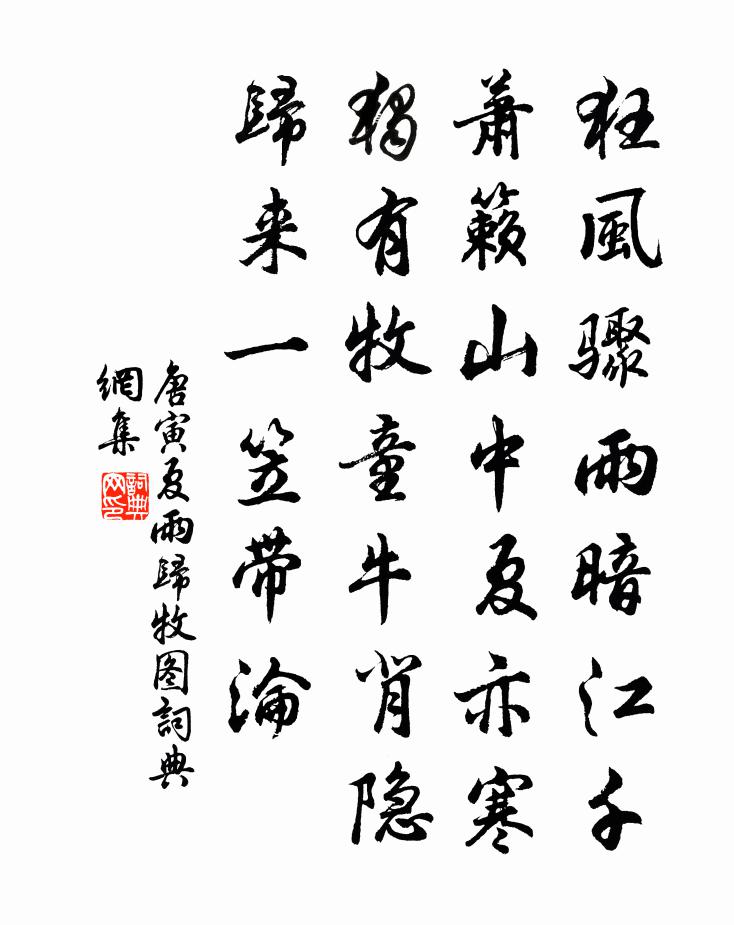 狂風驟雨暗江干
蕭籟山中夏亦寒
獨有牧童牛背隐
歸来一笠带淪
唐寅夏雨歸牧图詞典
網集
詞典網印